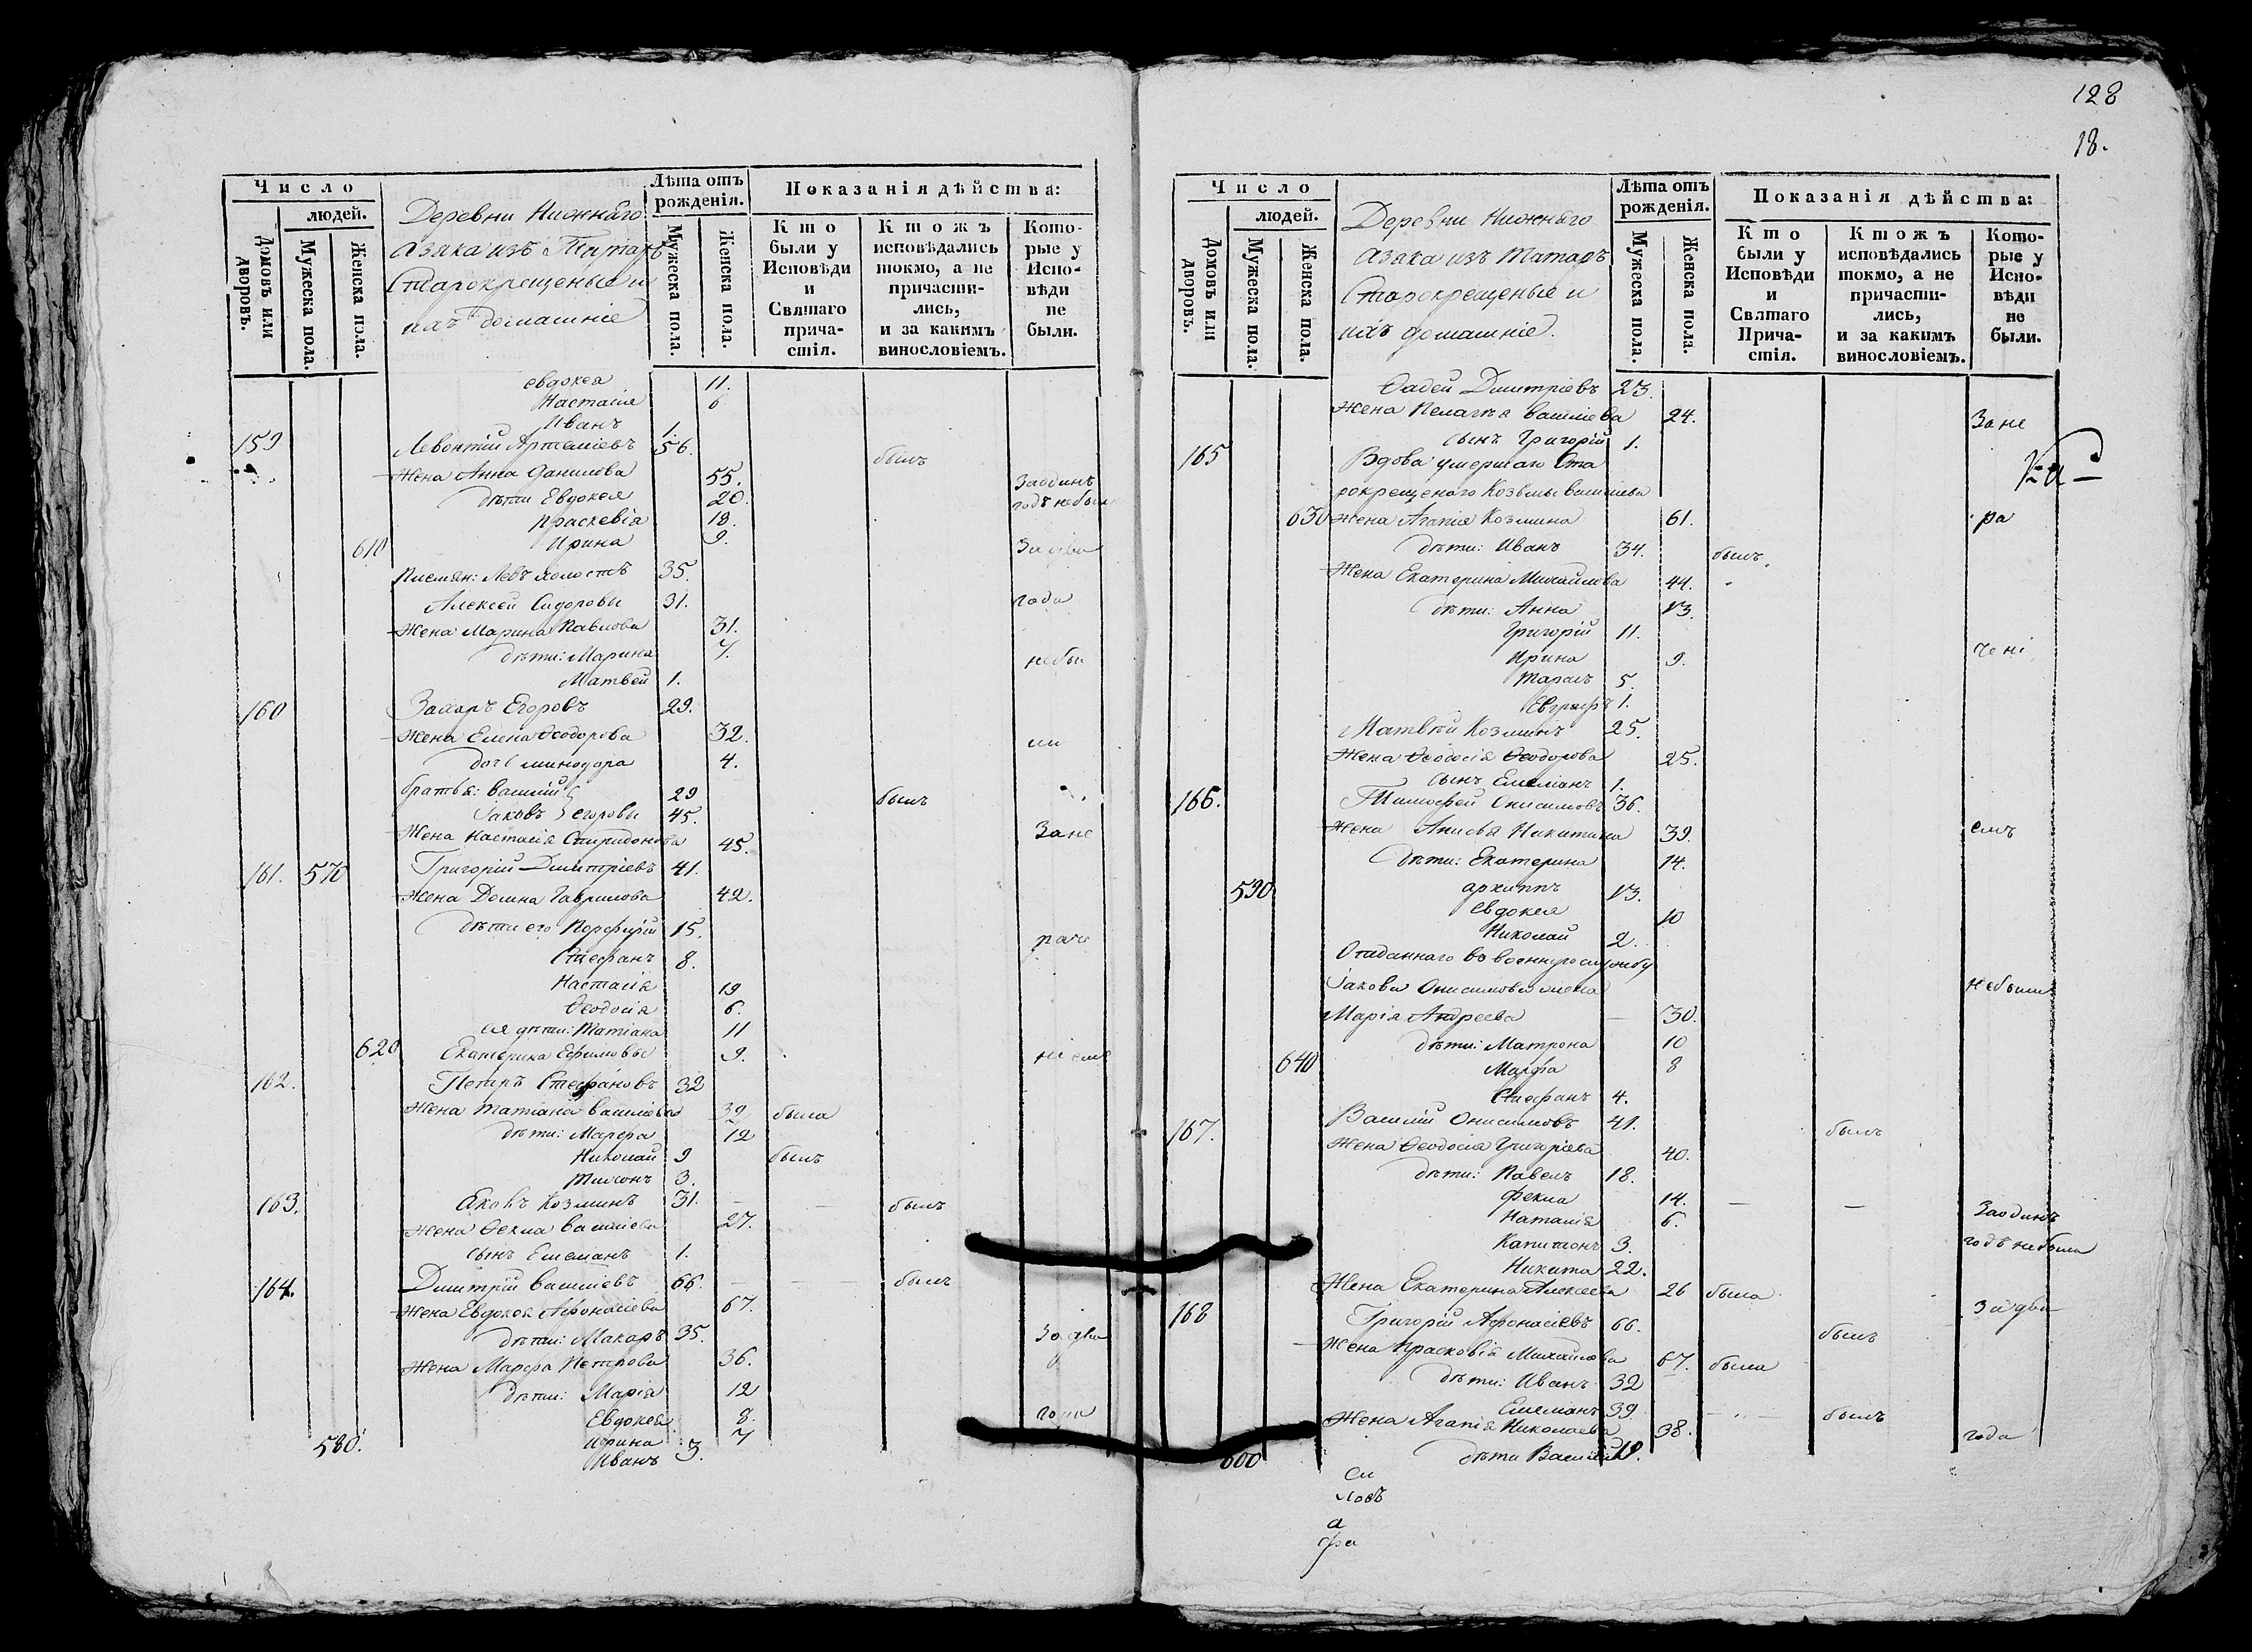 128
18.
Число
людей.
Домовъ или дворовъ.
Мужеска пола.
Женска пола.
Деревни Нижняго
Азяка изъ Татаръ
Старокрещеные и
ихъ домашніе
Лѣта отъ рожденія.
Мужеска пола.
Женска пола.
Показанія дѣйства:
Кто были у Исповѣди и Святаго прича-стія.
Ктожъ исповѣдались токмо, а не причасти-лись, и за какимъ винословіемъ.
Кото-рые у Испо-вѣди не были.
евдокея 11.
Настасія 6
Иванъ 1.
159 Левонтій Артеміевъ 56. былъ
Жена Анна Данилова 55. Заодинъ
дѣти Евдокея 20. годъ небыли
праскевія 18.
610 Ирина 9. За два
Племян: Левъ холостъ 35.
Алексей Сидоровы 31. года
Жена Марина Павлова 31.
дѣти: Марина 7. небы
Матвей 1.
160 Захаръ Егоровъ 29.
Жена Елена Ѳеодорова 32. ли
дочь минодора 4.
братья: василій 29 былъ
Іаковъ егоровы 45.
Жена Настасія Спиридонова 45. Зане
161. 570 Григорій Димитріевъ 41.
Жена Домна Гаврилова 42.
дѣти его Порфирій 15. раче
Стефанъ 8.
Настасія 19
Ѳеодосія 6.
ея дѣти: Татіана 11
620 Екатерина Ефимовы 9. ніемъ
162. Петръ Стефановъ 32
Жена Татіана василіева 39 была
дѣти: Марфа 12
Николай 9 былъ
Тихонъ 3.
163. Яковъ Козминъ 31. — былъ
Жена Ѳекла василіева 27.
сынъ Емелианъ 1.
164. Димитрій василіевъ 66. — былъ
Жена Евдокея Афонасіева 67.
дѣти: Макаръ 35. За два
Жена Марфа Петрова 36.
дѣти: Марія 12
Евдокея 8. года
Ирина 7
580. Иванъ 3.
Число
людей.
Домовъ или дворовъ.
Мужеска пола.
Женска пола.
Деревни Нижняго
Азяка изъ Татаръ
Старокрещеные и
ихъ домашніе.
Лѣта отъ рожденія.
Мужеска пола.
Женска пола.
Показанія дѣйства:
Кто были у Исповѣди и Святаго Прича-стія.
Ктожъ исповѣдались токмо, а не причасти-лись, и за какимъ винословіемъ.
Кото-рые у Испо-вѣди не были.
Ѳадей Димитріевъ 23.
Жена Пелагея василіева 24. Зане
сынъ Григорій 1.
165 Вдова умершаго Ста
рокрещенаго Козьмы василіева
630 жена Агапія Козмина 61. ра
дѣти: Иванъ 34. былъ.
Жена Екатерина Михаилова 44.
дѣти: Анна 13.
Григорій 11.
Ирина 9. чені
Тарасъ 5.
Евграфъ 1.
Матвѣй Козминъ 25.
Жена Ѳеодосія Ѳеодорова 25.
сынъ Емелианъ 1.
166. Тимофей Онисимовъ 36.
Жена Анисья Никитина 39. емъ
дѣти: Екатерина 14.
590 архиппъ 13.
евдокея 10
Николай 2.
Отданнаго въ военную службу
Іакова Онисимова жена небыли
Марія Андреева — 30.
дѣти: Матрона 10
640 Марфа 8
Стефанъ 4.
167. Василій Онисимовъ 41. былъ
Жена Ѳеодосія Григоріева 40.
дѣти: Павелъ 18.
Фекла 14. — — Заодинъ
Наталія 6.
Капитонъ 3. годъ небыли
Никита 22.
Жена Екатерина Алексеева 26 была
168 Григорій Афонасіевъ 66. былъ За два
Жена Прасковія Михаилова 67. была
дѣти: Иванъ 32
Емелианъ 39 былъ
Жена Агапія Николаева 38. года
600 дѣти Василій 19.
си
ловъ
а
фа